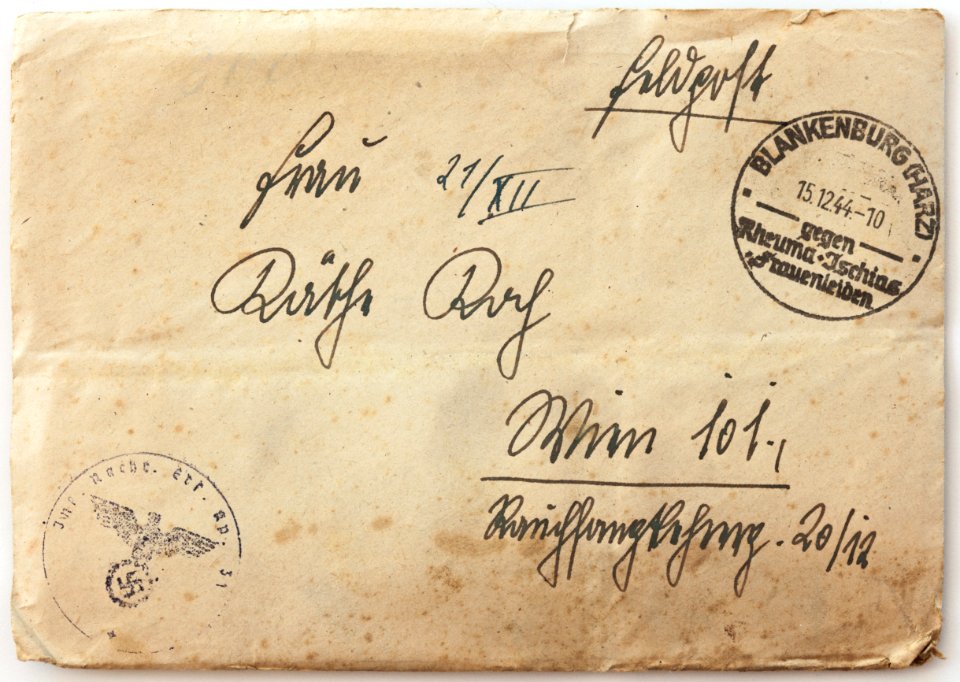 Feldpost
BLANKENBURG (HARZ)
15.12.44.-10
gegen
Rheuma · Ischias
Frauenleiden
Frau 21/XII
Käthe Koch
Wien 101.,
Rauchfangkehrerg. 20/12
Inf. Nachr. Ers. Kp. 31